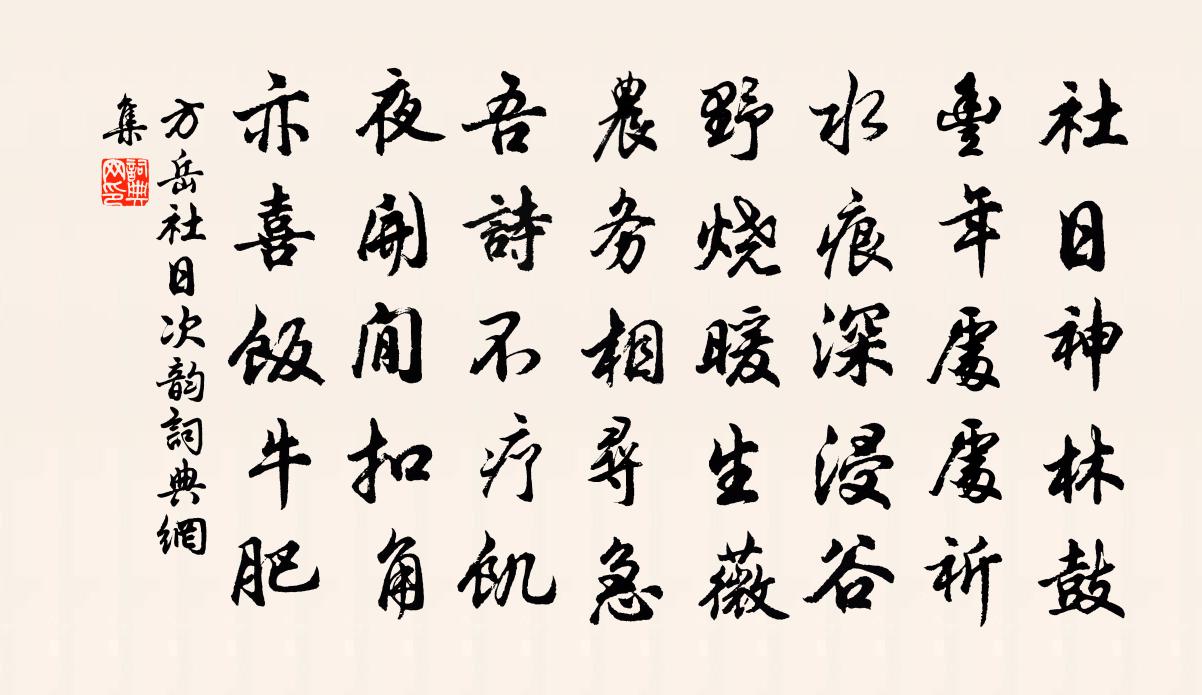 社日神林鼓
豐年處處祈
水痕深浸谷
野烧暖生薇
農务相尋急
吾詩不疗飢
夜開閒扣角
亦喜飯牛肥
方岳社日次韵詞典網
集
詞典網印